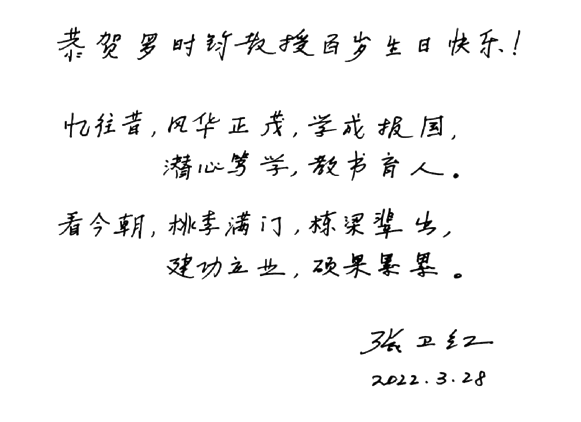 恭贺罗时钧教授百岁生日快乐!
忆往昔,风华正茂,学成报国,
潜心笃学,教书育人。
看今朝,桃李满门,栋梁辈出,
建功立业,硕果累累。
张卫红
2022.3.28